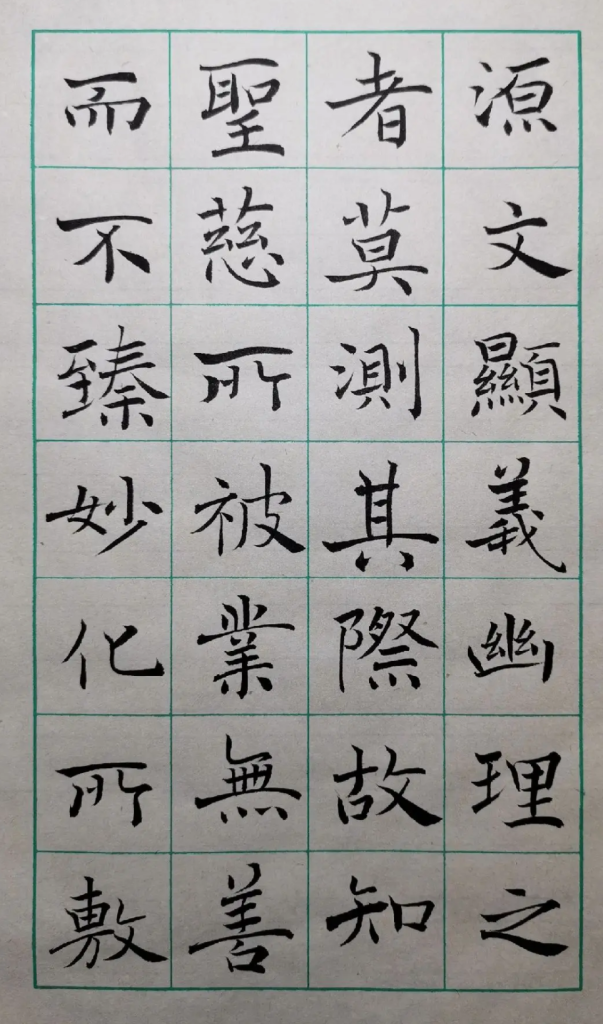 源文顯義幽理之
者莫測其際故知
聖慈所被業無善
而不臻妙化所敷